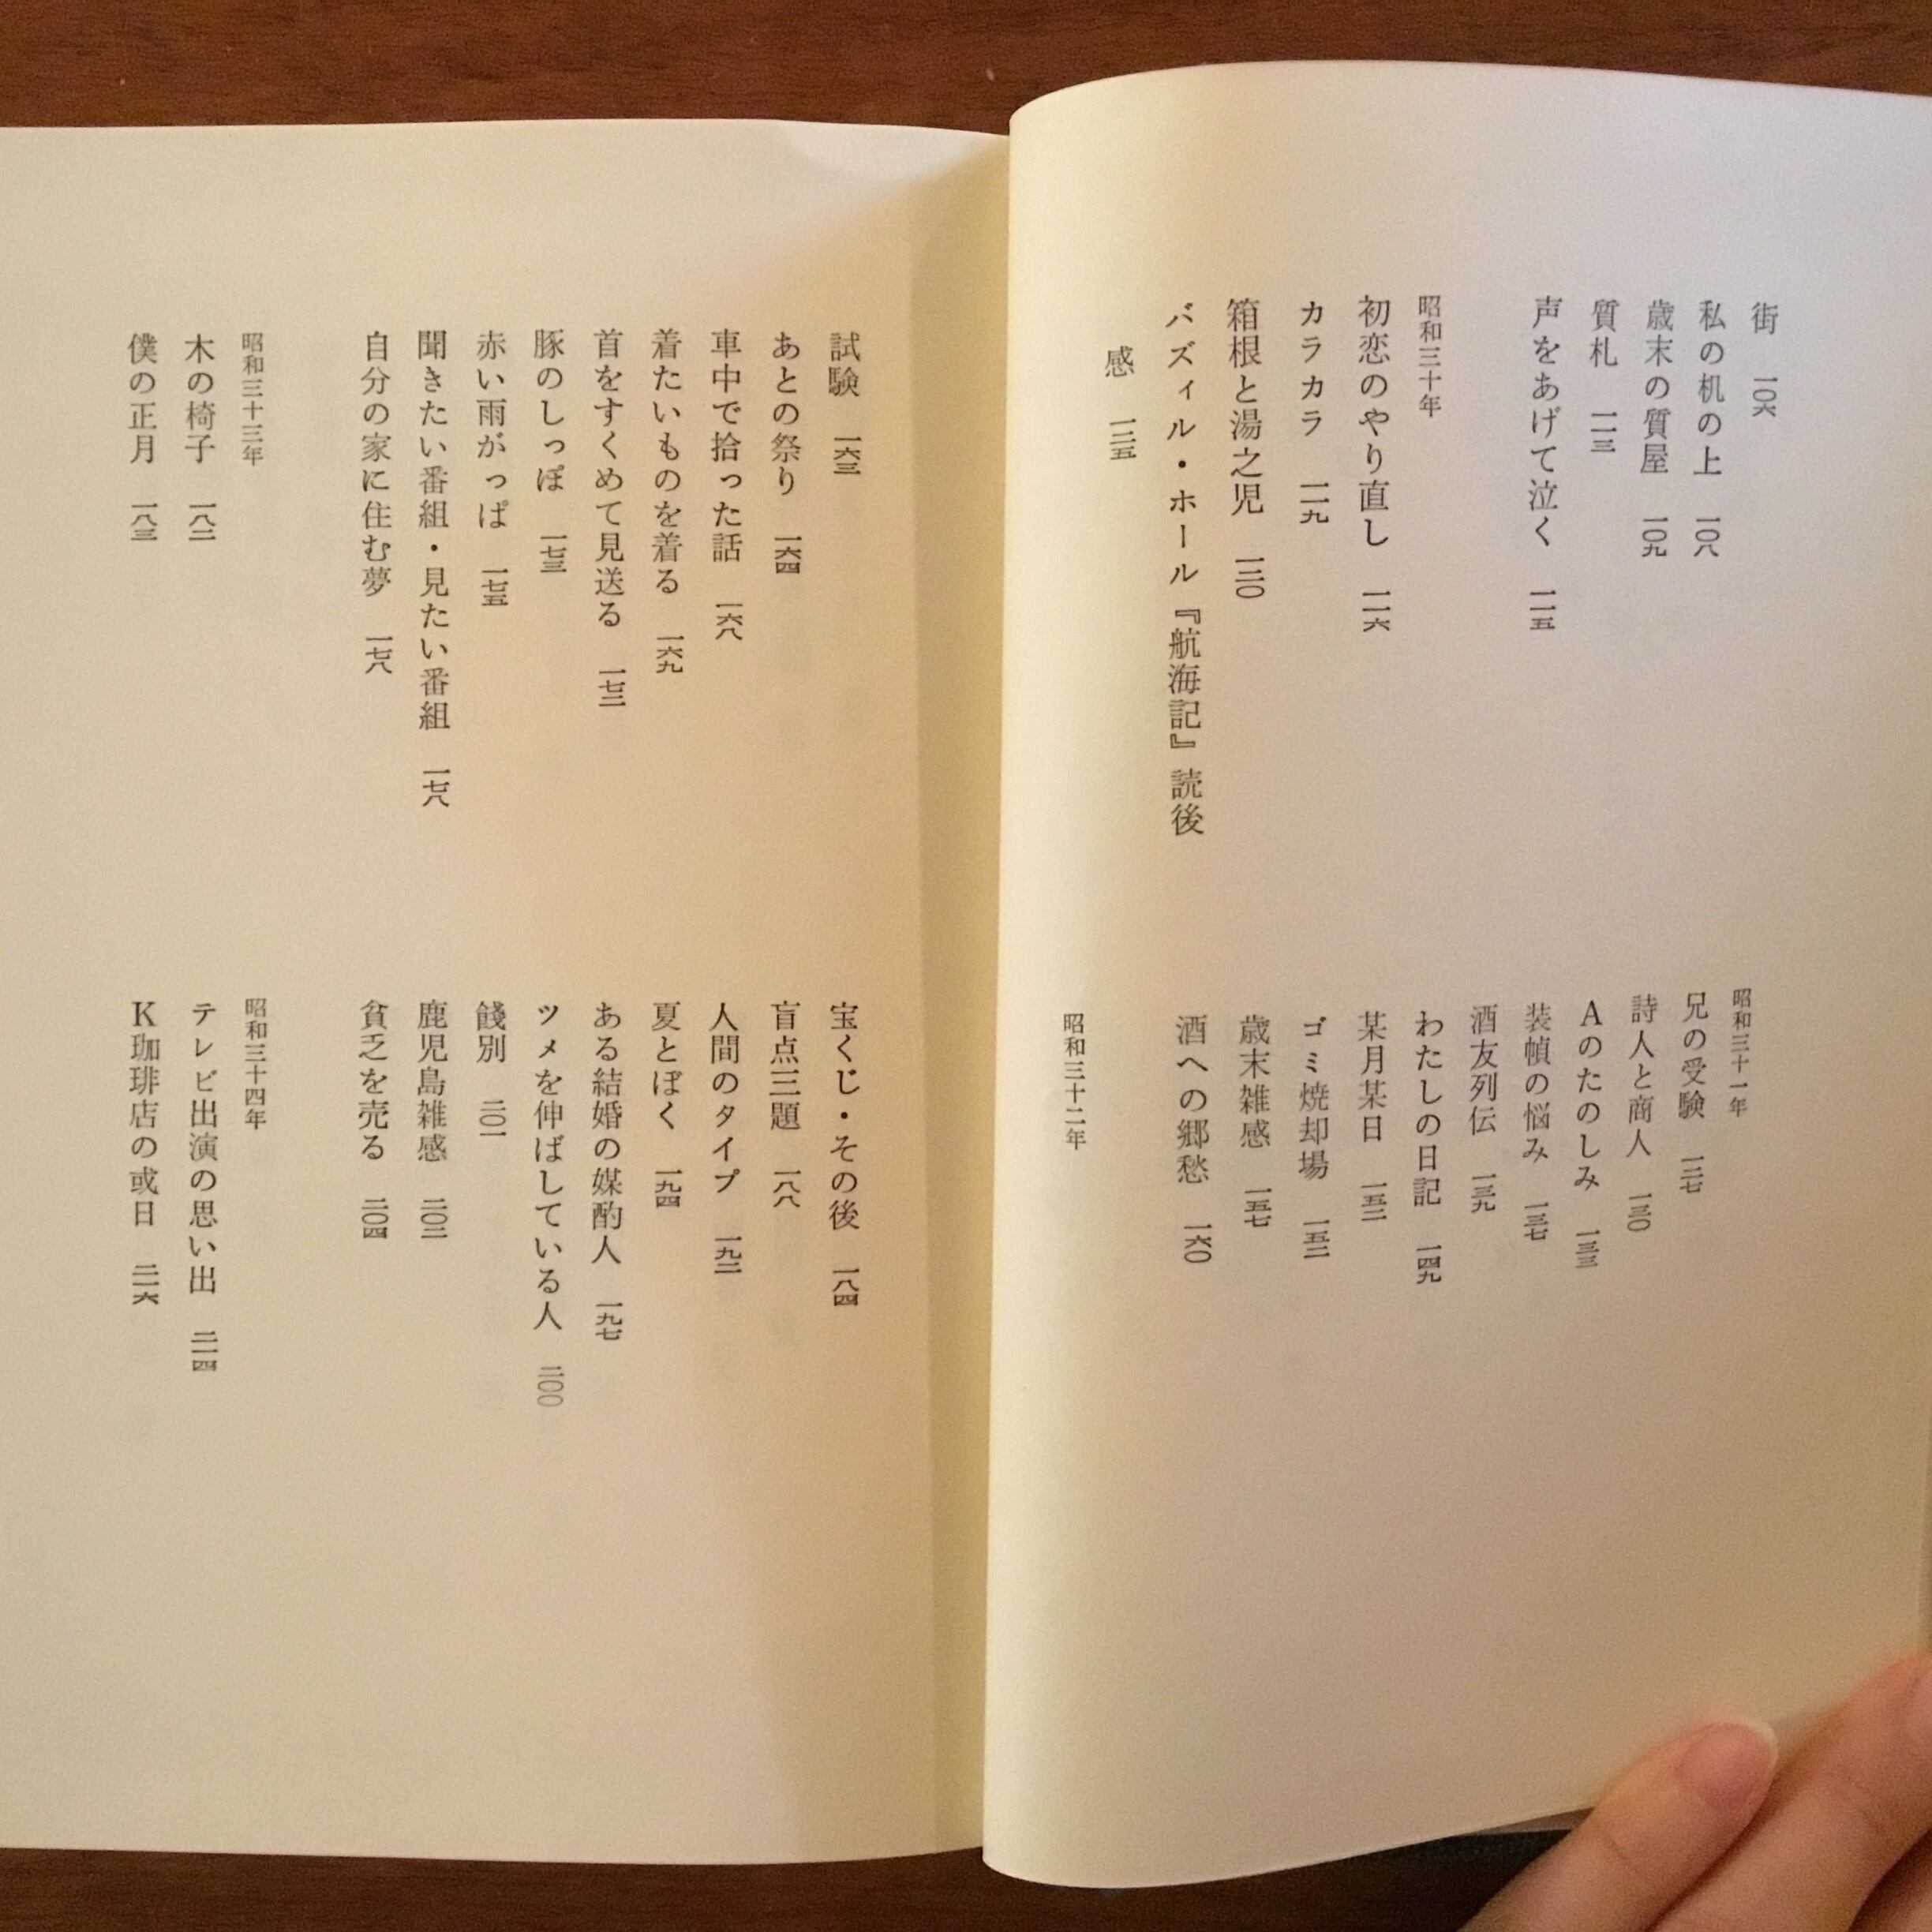 街　一〇六
私の机の上　一〇八
歳末の質屋　一〇九
質札　一一三
声をあげて泣く　一一五
昭和三十年
初恋のやり直し　一一六
カラカラ　一一九
箱根と湯之児　一二〇
バズィル・ホール『航海記』読後
感　一二五
昭和三十一年
兄の受験　一二七
詩人と商人　一三〇
Aのたのしみ　一三三
装幀の悩み　一三七
酒友列伝　一三九
わたしの日記　一四九
某月某日　一五二
ゴミ焼却場　一五二
歳末雑感　一五七
酒への郷愁　一六〇
昭和三十二年
試験　一六三
あとの祭り　一六四
車中で拾った話　一六八
着たいものを着る　一六九
首をすくめて見送る　一七二
豚のしっぽ　一七三
赤い雨がっぱ　一七五
聞きたい番組・見たい番組　一七八
自分の家に住む夢　一七八
昭和三十三年
木の椅子　一八二
僕の正月　一八三
宝くじ・その後　一八四
盲点三題　一八八
人間のタイプ　一九二
夏とぼく　一九四
ある結婚の媒酌人　一九七
ツメを伸ばしている人　二〇〇
餞別　二〇一
鹿児島雑感　二〇二
貧乏を売る　二〇四
昭和三十四年
テレビ出演の思い出　二一四
K珈琲店の或日　二一六